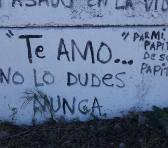 PASADO EN LA VIDA
"TE AMO...
NO LO DUDES
NUNCA
"PARMI.
PAPIT
DE SO
PAPIT